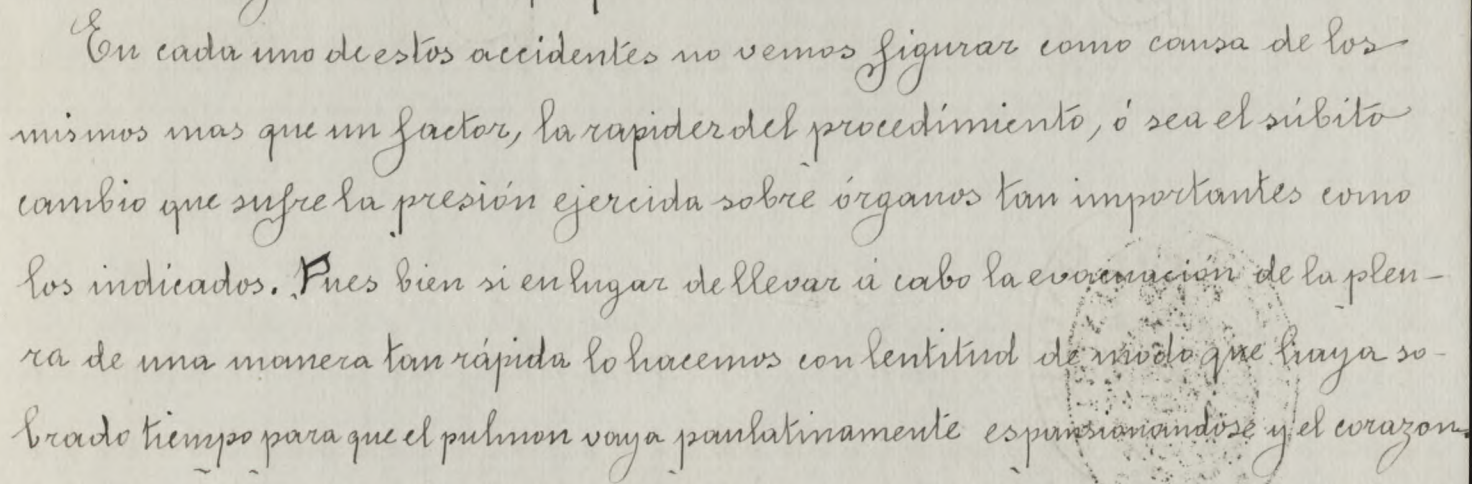 En cada uno de estos accidentes no vemos figurar como causa de los
mismos mas que un factor, la rapidez del procedimiento, ó sea el súbito
cambio que sufre la presión ejercida sobre órganos tan importantes como
los indicados. Pues bien si en lugar de llevar á cabo la evacuación de la pleu-
ra de una manera tan rápida lo hacemos con lentitud de modo que haya so-
brado tiempo para que el pulmon vaya paulatinamente espansionandose y el corazon